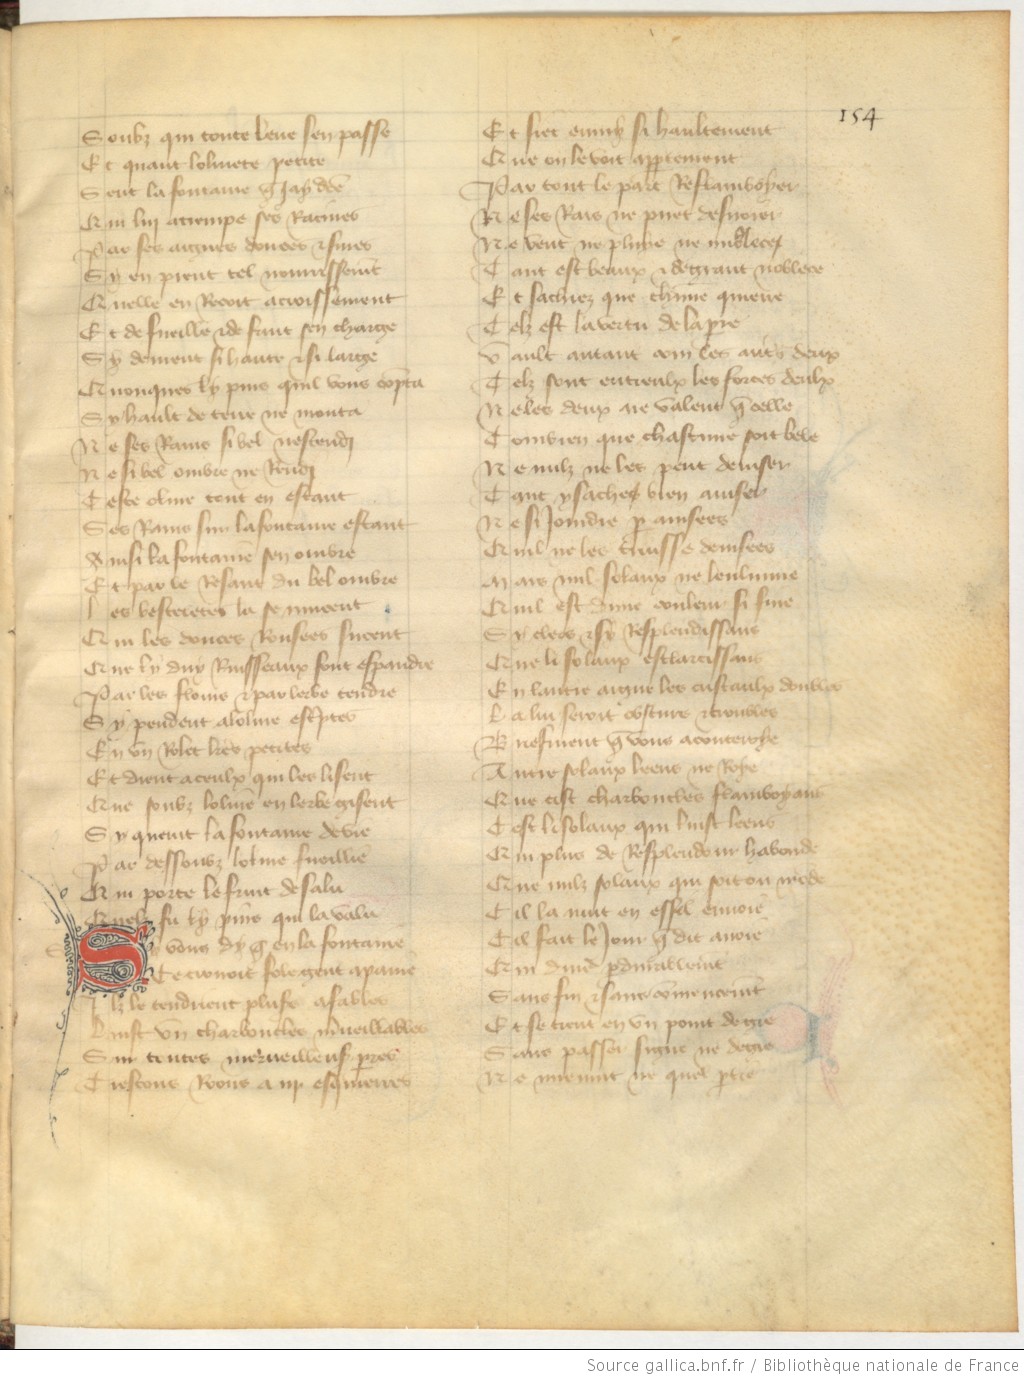 154
Soubz qui toute l'eue s'en passe
Et quant l'olivete petite
Sent la fontaine
Qui luy atrempe ses Racines
Par ses aigues douces et fines
Sy en prent tel nourrissement
Quelle en Recoit acroissement
Et de fueille et de fruit s'en charge
Sy devient si haute et si large
Qu'onques ly pins qu'il vous conpta
Sy hault de terre ne monta
Ne ses Rains si bel n'estendi
Ne si bel ombre ne Rendi
Ceste olive tout en estant
Ses Rains sur la fontaine estant
Ainsi la fontaine s'en ombre
Et par le Resant du bel ombre
Les besteletes la se mucent
Qui les douces Rousees sucent
Que ly duy Ruisseaux font espandre
Par les flours et par l'erbe tendre
Sy pendent a l'olive escriptes
En un Rolet letres petites
Et dient a ceulx qui les lisent
Que soubz l'olive en l'erbe gisent
Sy queurt la fontaine de vie
Par dessoubz l'olive fueillie
Qui porte le fruit de salu
Quelz fu ly pins qui la valu
Sy vous dy que en la fontaine
Ce croiroit fole gent a paine
Ilz le tendroient pluseurs a fables
Luist un charboucles merveillables
Sur toutes merveilleuses pierres
Trestous Roons a iii esquierres
Et siet enmy si haultement
Que on le voit appertement
Par tout le parc Reflamboyer
Ne ses Rais ne puet desvoier
Ne vent ne pluye ne nublece
Tant est beaux et de grant noblece
Et sachiez que chascune quierre
Telz est la vertu de la pierre
Vault autant com les autres deux
Telz sont entreulx les forces deulx
Ne les deux ne valent que celle
Combien que chascune soit bele
Ne nulz ne les peut deviser
Tant y saches bien aviser
Ne si Joindre par avisees
Qu'il ne les truisse devisees
Mais nul solaux ne l'enlumine
Qu'il est d'une couleur si fine
Sy clers et si Resplendissans
Que li solaux esclarcissans
En l'autre aigue les cristaulx doubles
La luy seroit obscurs et troubles
Briefment que vous aconteroye
Autre solaux leens ne Roye
Que cist charboucles flamboyans
C'est li solaux qui luist leens
Qui plus de Resplendour habonde
Que nulz solaux qui soit ou monde
Cil la nuit en essil envoie
Cil fait le Jour que dit avoie
Qui dure pardurablement
Sans fin et sans commencement
Et se tient en un point de gre
Sans passer signe ne degre
Ne minuit ne quel partie